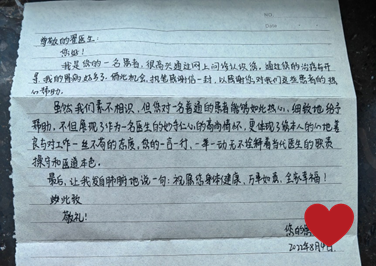 尊敬的翟医生:
您好!
我是您的一名患者,很高兴通过网上问诊认识您,通过您的治疗与开
导,我的胃病好多了,借此机会,提笔感谢信一封,以感谢您对我们这些患者的热
心帮助。
虽然我们素不相识,但您对一名普通的患者能够如此热心、细致地给予
帮助,不但展现了作为一名医生的妙手仁心的高尚情怀,更体现了您本人的心地善
良与对工作一丝不苟的态度,您的一言一行、一举一动无不诠释着当代医生的职责
操守和医道本色。
最后,让我发自肺腑地说一句:祝愿您身体健康,万事如意,全家幸福!
此致
敬礼!
您的患
2022年8月9日